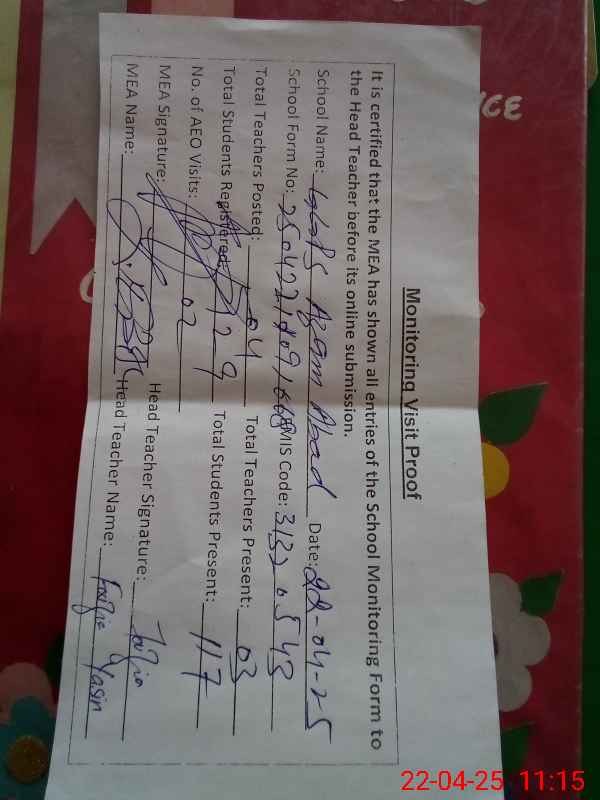 Monitoring Visit Proof
It is certified that the MEA has shown all entries of the School Monitoring Form to
the Head Teacher before its online submission.
School Name: Azam Abad Date: 22-04-25
School Form No: MIS Code: 31320543
Total Teachers Posted: 04 Total Teachers Present: 03
Total Students Registered: 129 Total Students Present: 117
No. of AEO Visits: 02
MEA Signature: Head Teacher Signature: Fozia
MEA Name: Head Teacher Name: Fozia Yasin
CE
22-04-25 11:15